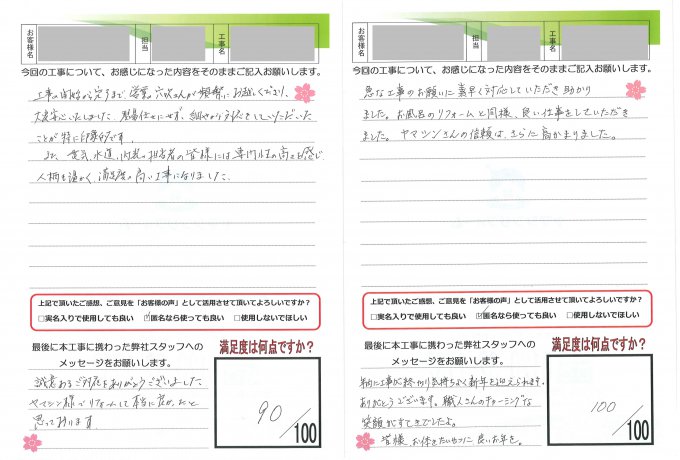 お客様名
担当
工事名
今回の工事について、お感じになった内容をそのままご記入お願いします。
工事の開始から完了まで、営業の穴吹さんが頻繁にお越しくださり、
大変安心いたしました。現場任せにせず、細やかな対応をしていただいた
ことが特に印象的です。
また、電気、水道、内装の担当者の皆様には専門性の高さを感じ
人柄も温かく、満足度の高い工事になりました。
上記で頂いたご感想、ご意見を「お客様の声」として活用させて頂いてよろしいですか?
□実名入りで使用しても良い ☑匿名なら使っても良い □使用しないでほしい
最後に本工事に携わった弊社スタッフへの
メッセージをお願いします。
誠意あるご対応をありがとうございました。
ヤマシン様でリフォームして本当に良かったと
思っております
満足度は何点ですか?
90/100
お客様名
担当
工事名
今回の工事について、お感じになった内容をそのままご記入お願いします。
急な工事のお願いに素早く対応していただき助かり
ました。お風呂のリフォームと同様、良い仕事をしていただき
ました。ヤマシンさんの信頼は、さらに高かまりました。
上記で頂いたご感想、ご意見を「お客様の声」として活用させて頂いてよろしいですか?
□実名入りで使用しても良い ☑匿名なら使っても良い □使用しないでほしい
最後に本工事に携わった弊社スタッフへの
メッセージをお願いします。
年内に工事が終わり気持ちよく新年を迎えられます。
ありがとうございます。職人さんのチャーミングな
笑顔がすてきでしたよ。
皆様、お体をたいせつに良いお年を。
満足度は何点ですか?
100/100